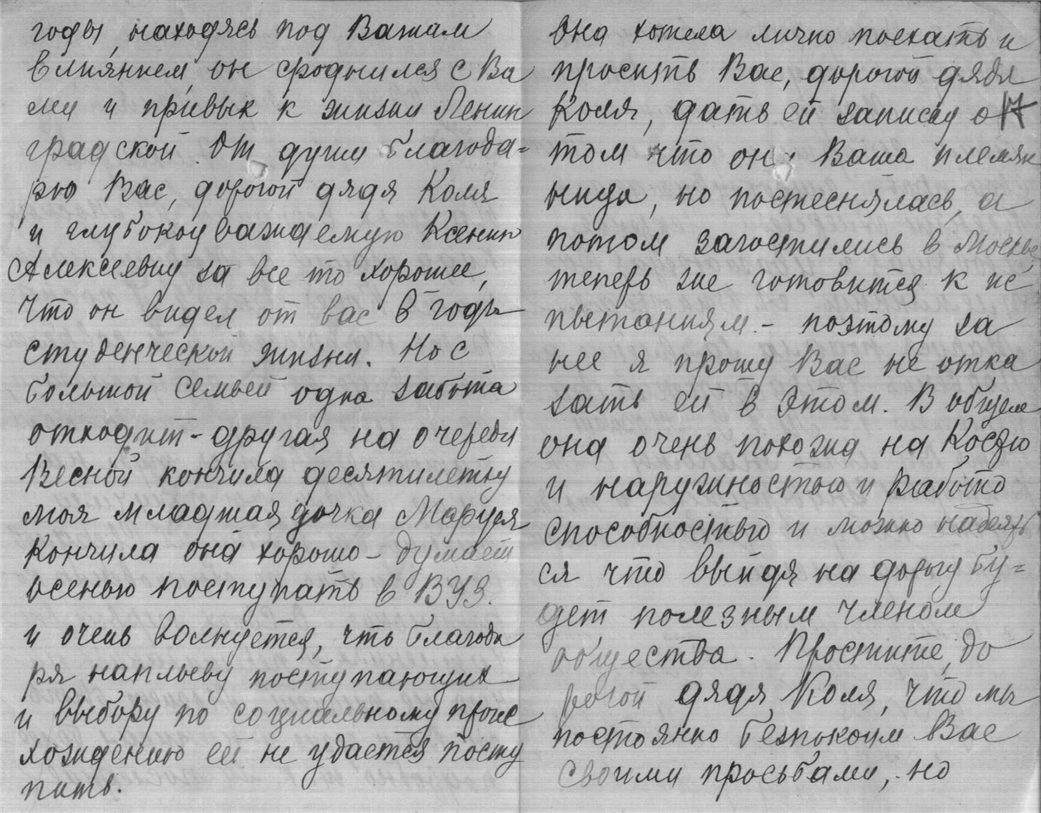 годы, находясь под Вашим
влиянием, он сроднился с Ва
ми и привык к жизни Ленин
градской. От души благода-
рю Вас, дорогой дядя Коля
и глубокоуважаемую Ксению
Алексеевну за все то хорошее,
что он видел от вас в годы
студенческой жизни. Но с
большой семьей одна забота
отходит - другая на очереди
Весной кончила десятилетку
моя младшая дочка Маруся
Кончила она хорошо - думает
осенью поступать в ВУЗ.
и очень волнуется, что благода
ря наплыву поступающих
и выбору по социальному проис
хождению ей не удается посту
пить.
Она хотела лично поехать и
просить Вас, дорогой дядя
Коля, дать ей записку о
том что она Ваша племян
ница, но постеснялась, а
потом загостились в Москве,
теперь же готовится к ис
пытаниям - поэтому за
нее я прошу Вас не отка
зать ей в этом. В общем
она очень похожа на Костю
и наружностью и работо
способностью и можно надеять
ся что выйдя на дорогу бу=
дет полезным членом
общества. Простите, до
рогой дядя Коля, что мы
постоянно безпокоим Вас
своими просьбами, но